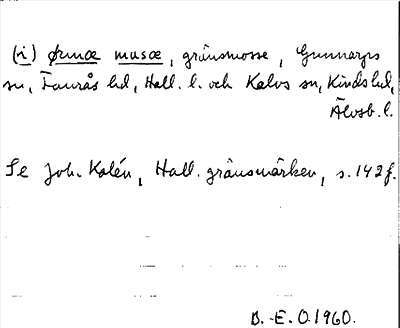 (i) ørnæ musæ, gränsmosse, Gunnarps
sn, Faurås hd, Hall. l. och Kalvs sn, Kinds hd,
Älvsb. l.
Se Joh. Kalén, Hall. gränsmärken, s. 142 f.
B. E. O. 1960.